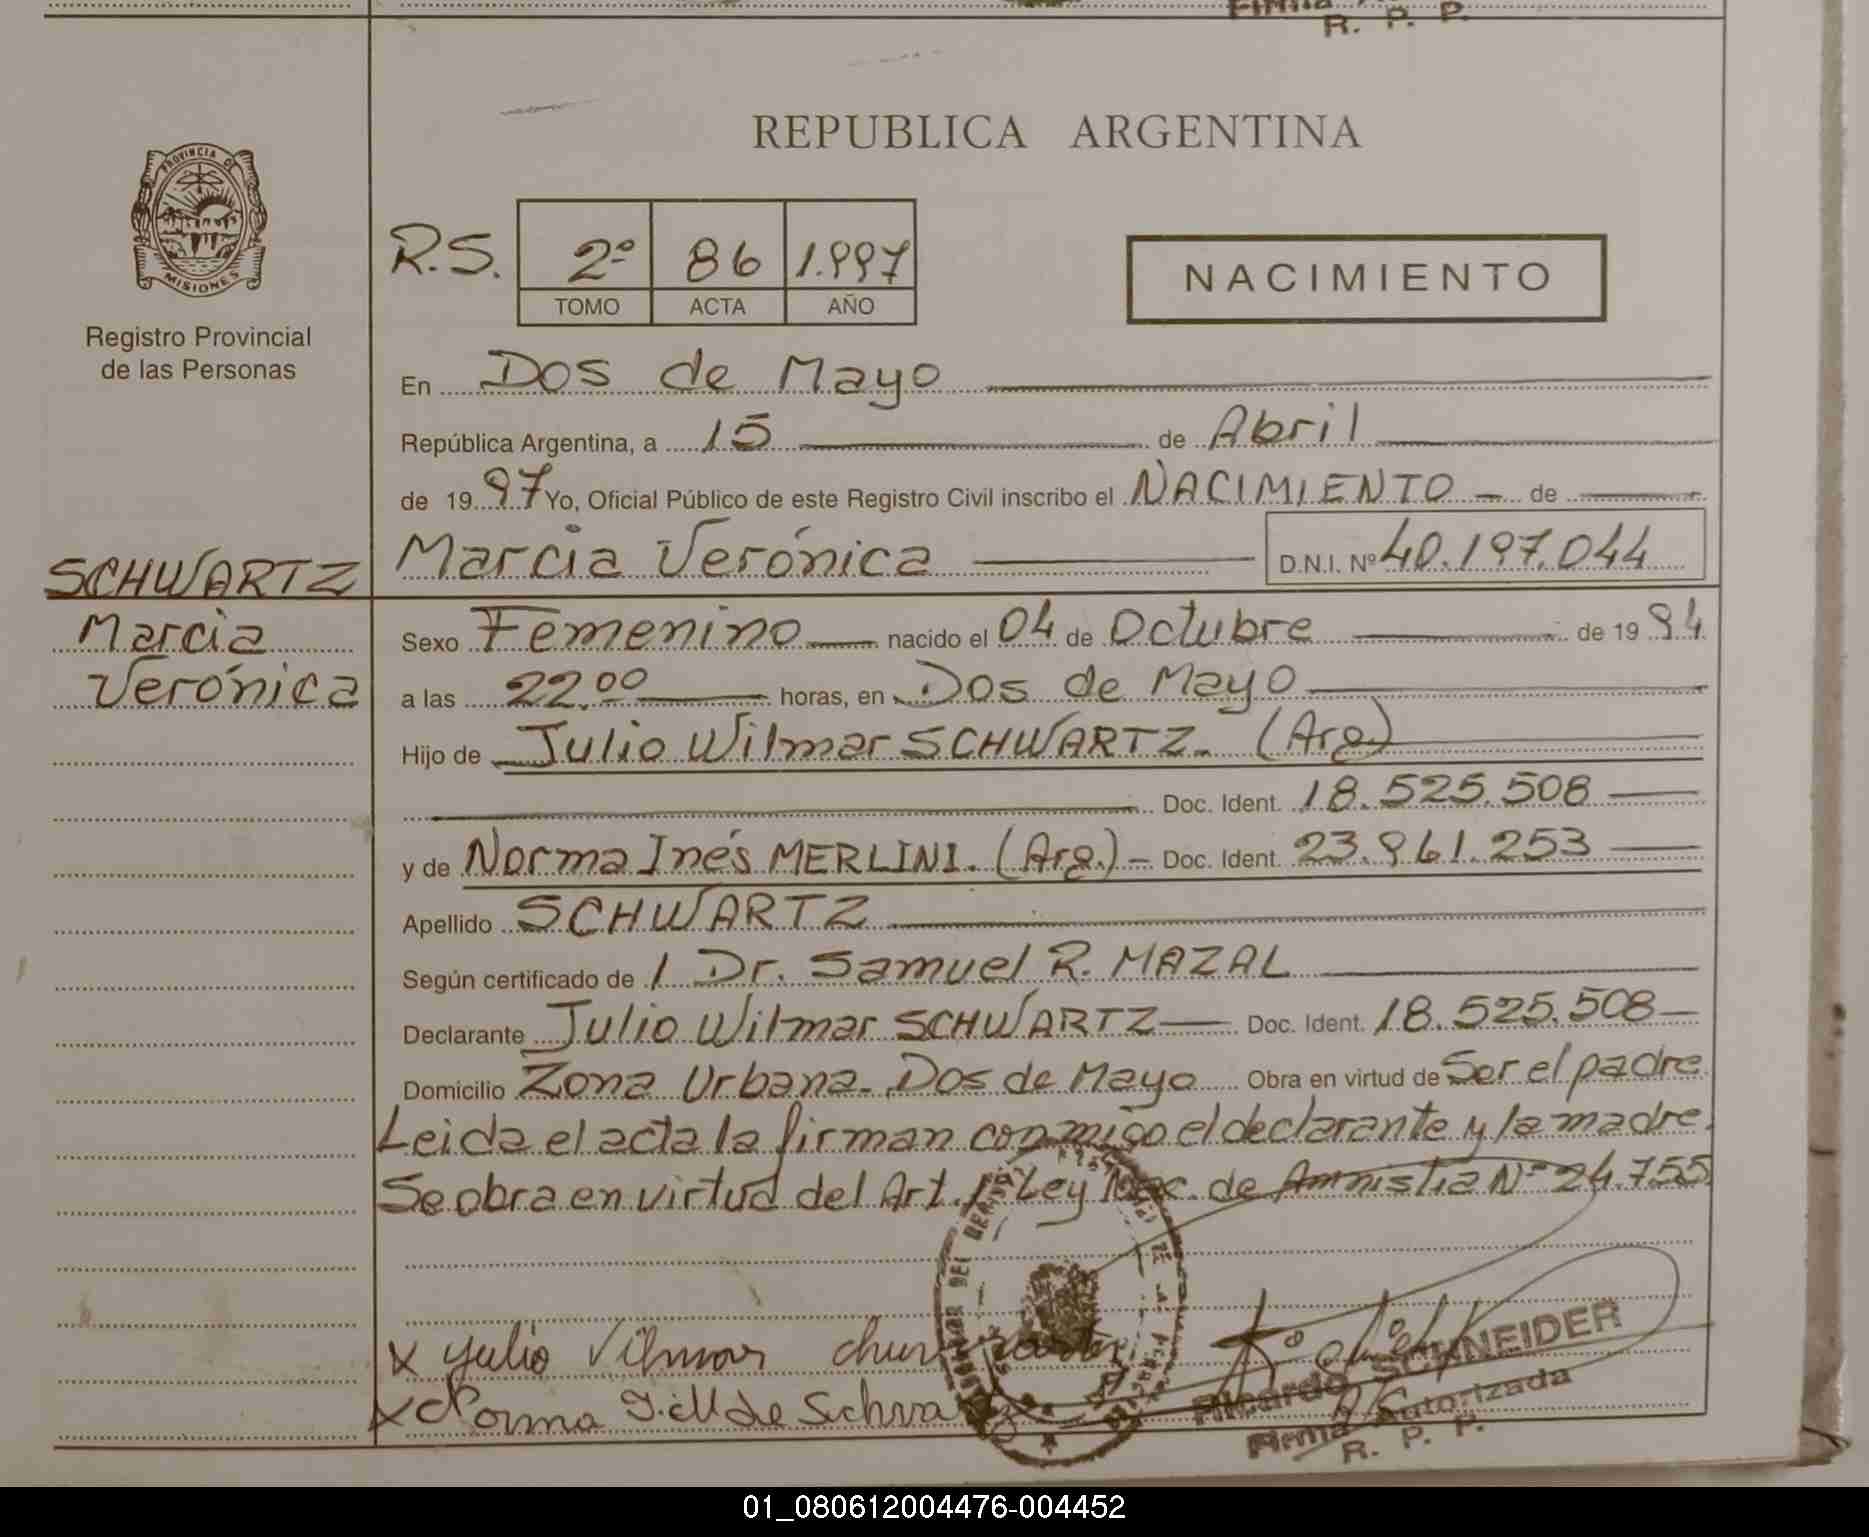 Firma
R. P. P.
REPUBLICA ARGENTINA
PROVINCIA DE
MISIONES
Registro Provincial
de las Personas
R.S. 2º 86 1.997
TOMO ACTA AÑO
NACIMIENTO
En Dos de Mayo
República Argentina, a 15 de Abril
de 1997 Yo, Oficial Público de este Registro Civil inscribo el NACIMIENTO - de
Marcia Verónica D.N.I. Nº 40.197.044
SCHWARTZ
Marcia
Verónica
Sexo Femenino nacido el 04 de Octubre de 1994
a las 22.00 horas, en Dos de Mayo
Hijo de Julio Wilmar SCHWARTZ. (Arg.)
Doc. Ident. 18.525.508
y de Norma Inés MERLINI. (Arg.) - Doc. Ident. 23.961.253
Apellido SCHWARTZ
Según certificado de / Dr. Samuel R. MAZAL
Declarante Julio Wilmar SCHWARTZ Doc. Ident. 18.525.508
Domicilio Zona Urbana - Dos de Mayo Obra en virtud de Ser el padre
Leida el acta la firman conmigo el declarante y la madre.
Se obra en virtud del Art. 1º Ley Nac. de Amnistia Nº 24.755
x Yulio Vilmar
x Norma I. M de Schwartz
Ricardo SCHNEIDER
Firma Autorizada
R. P. P.
01_080612004476-004452